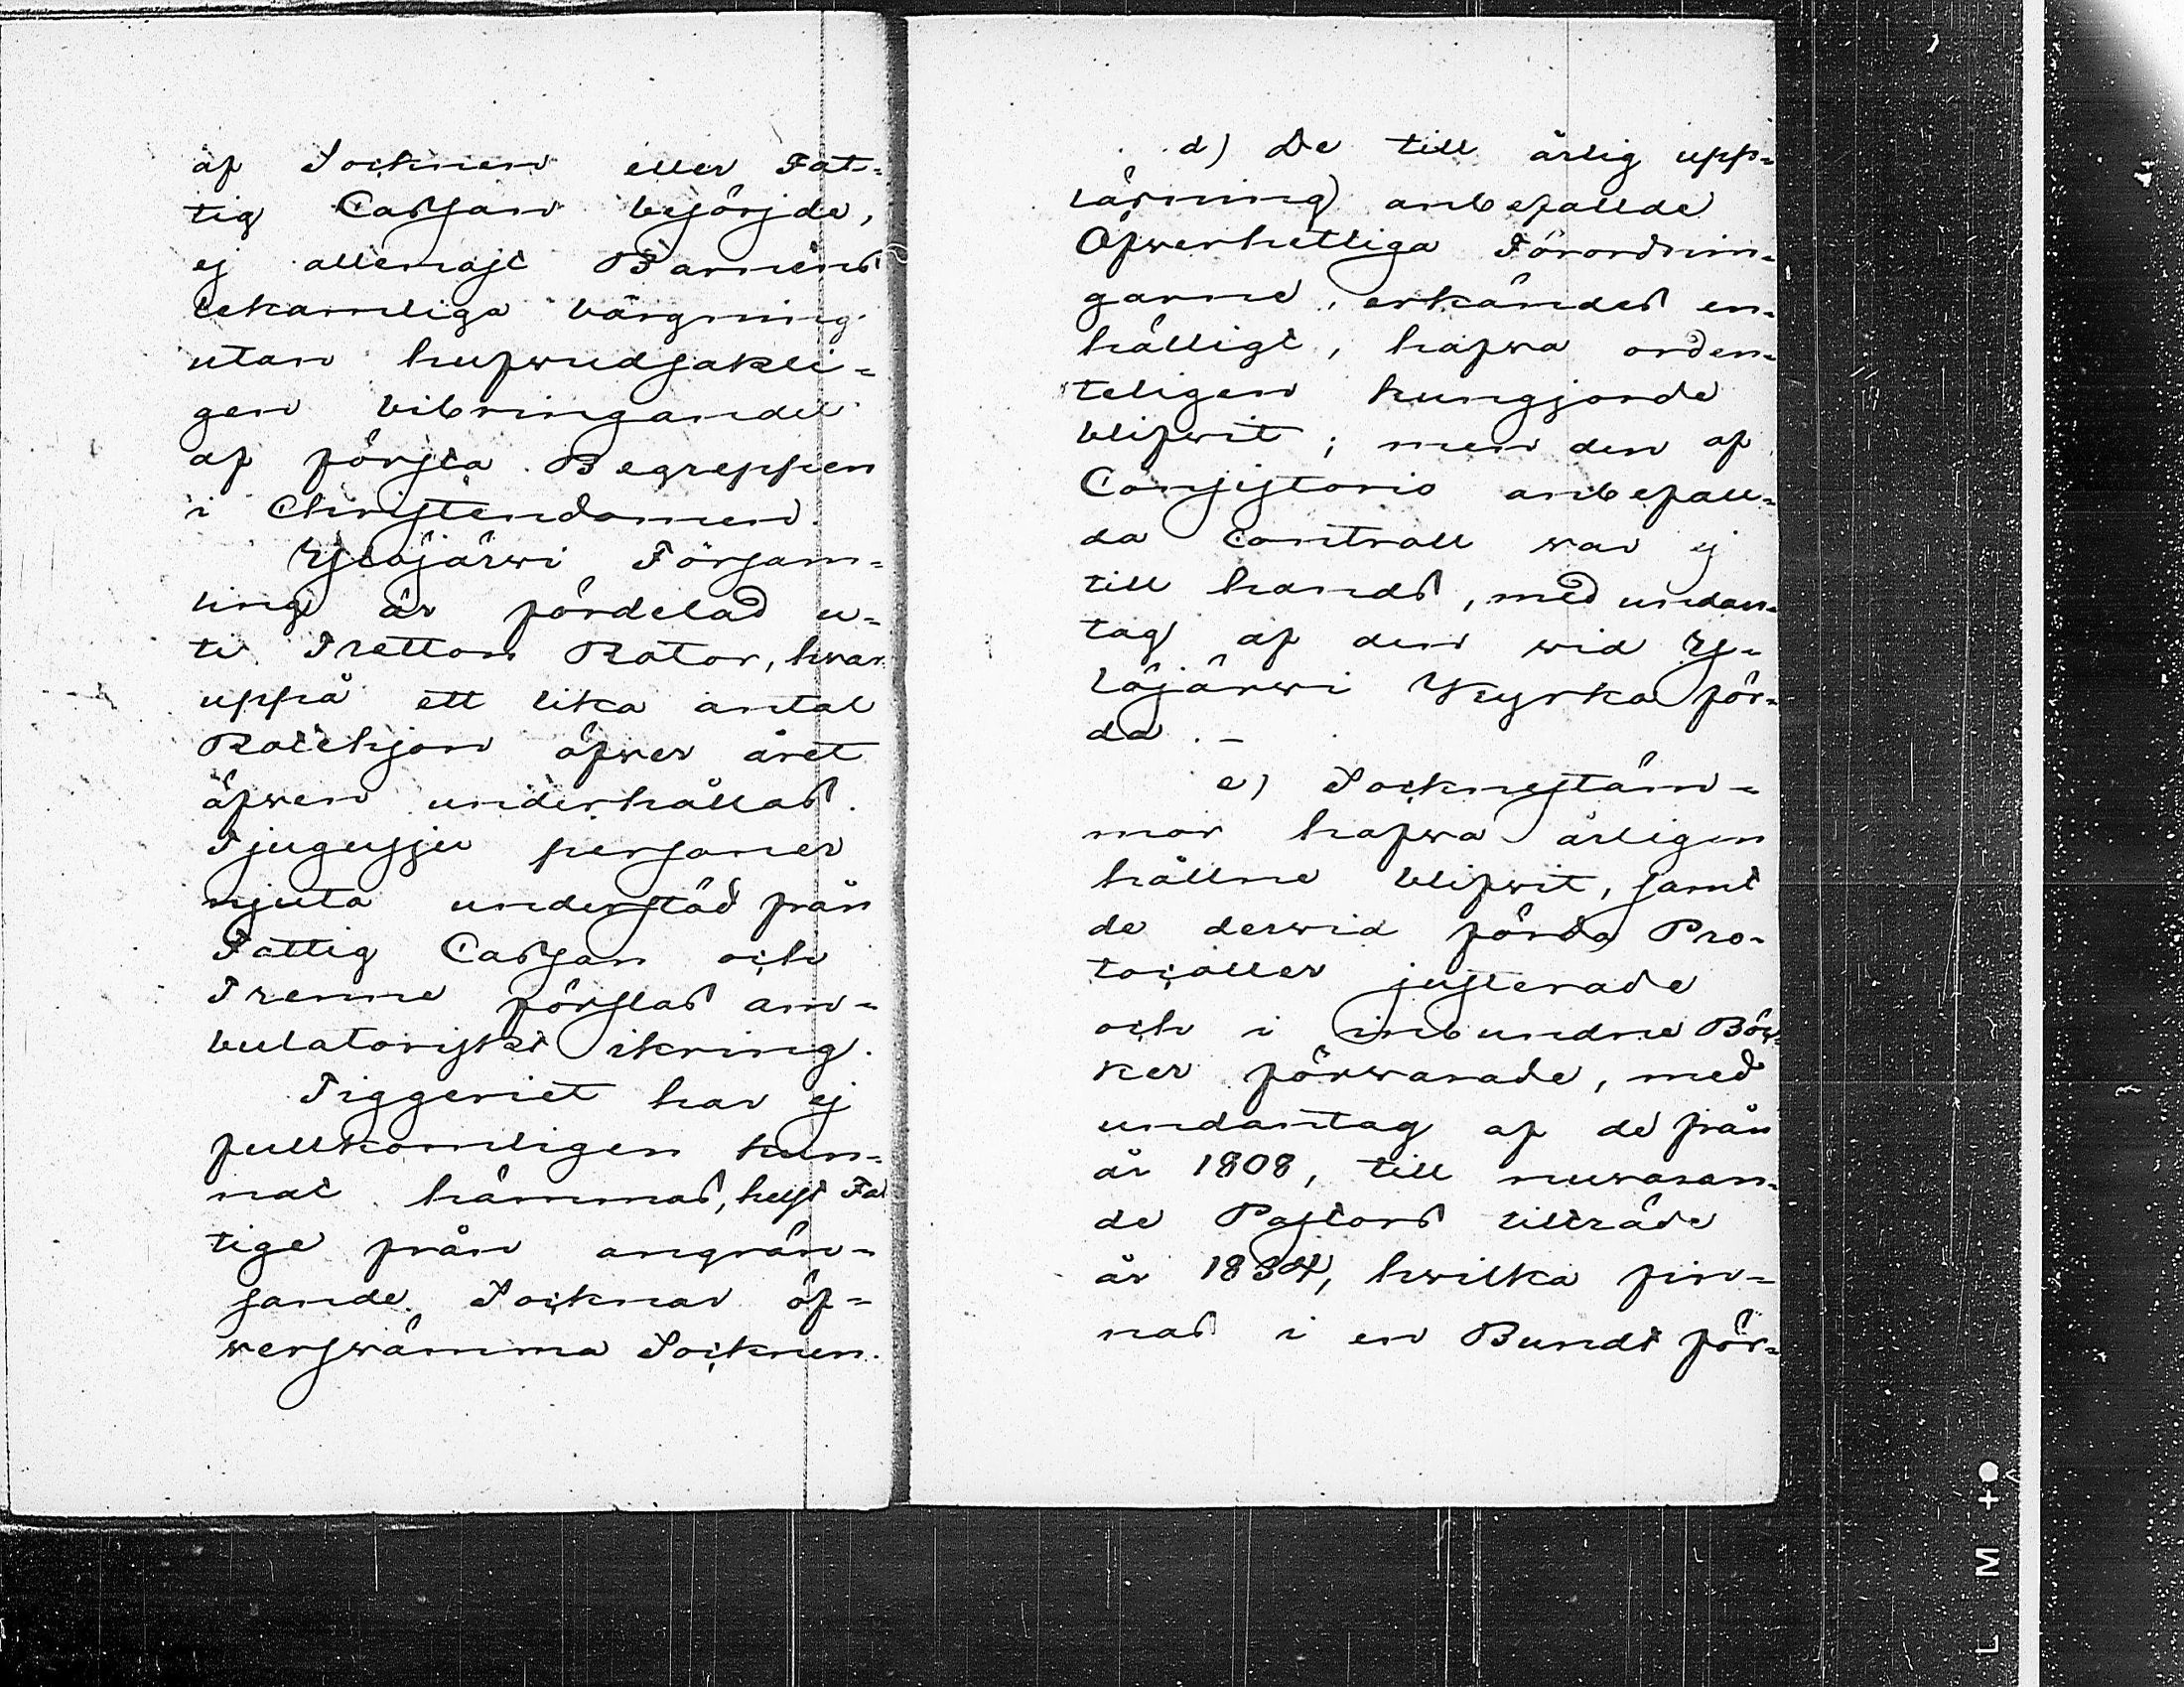 af Socknen eller Fat=
tig Cassan besörjde,
ej allenast Barnens
lekamliga bärgning
utan hufwudsakli=
gen bibringandet
af första Begreppen
i Christendomen.
Ylöjärwi Försam=
ling är fördelad u=
ti Tretton Rotor, hvar
uppå ett lika antal
Rotehjon öfwer året
äfwen underhållas.
Tjugusju personer
njuta understöd från
Fattig Cassan och
Trenne förslas am=
bulatoriskt ikring.
Tiggeriet har ej
fullkomligen kun=
nat hämmas, helst Fat
tige från angrän=
sande Socknar öf=
werswämma Socknen.
d) De till årlig upp=
läsning anbefallde
Öfwerhetliga Förordnin=
garne, erkändes en=
hälligt, hafwa orden=
teligen kungjorde
blifwit; men den af
Consistorio anbefall=
da Controll war ej
till hands, med undan=
tag af den wid Y=
löjärwi Kyrka för=
da. –
e) Socknestäm=
mor hafwa årligen
hållne blifwit, samt
de derwid förda Pro=
tocoller justerade
och i inbundne Böc
ker förwarade, med
undantag af de från
år 1808, till nuwaran=
de Pastors tillträde
år 1834, hwilka fin=
nas i en Bundt för=
L M +